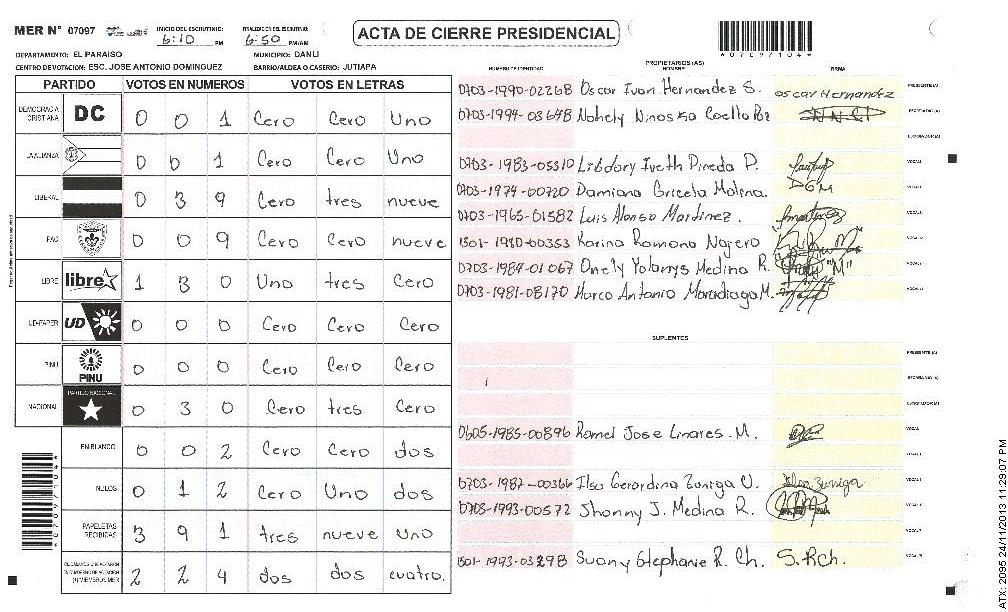 MER Nº 07097
INICIO DEL ESCRUTINIO: 6:10 PM
FINALIZACION ESCRUTINIO: 6:50 PM/AM
ACTA DE CIERRE PRESIDENCIAL
*07097104*
DEPARTAMENTO: EL PARAISO
MUNICIPIO: DANLI
CENTRO DE VOTACION: ESC. JOSE ANTONIO DOMINGUEZ
BARRIO/ALDEA O CASERIO: JUTIAPA
PARTIDO VOTOS EN NUMEROS VOTOS EN LETRAS
DEMOCRACIA CRISTIANA DC 0 0 1 Cero Cero Uno
LA ALIANZA 0 0 1 Cero Cero Uno
LIBERAL 0 3 9 Cero tres nueve
PAC 0 0 9 Cero Cero nueve
LIBRE libre 1 3 0 Uno tres Cero
UD-FAPER UD 0 0 0 Cero Cero Cero
PINU PINU 0 0 0 Cero Cero Cero
NACIONAL PARTIDO NACIONAL 0 3 0 Cero tres Cero
EN BLANCO 0 0 2 Cero Cero dos
NULOS 0 1 2 Cero Uno dos
PAPELETAS RECIBIDAS 3 9 1 tres nueve uno
(+) MIEMBROS MER 2 2 4 dos dos cuatro.
*07097104*
PROPIETARIOS (AS)
NUMERO DE IDENTIDAD NOMBRE FIRMA
0703-1990-02268 Oscar Ivan Hernandez S. oscar Hernandez PRESIDENTE (A)
0703-1994-03648 Nohely Ninoska Coello Paz SECRETARIO (A)
ESCRUTADOR (A)
0703-1983-05310 Libdory Iveth Pineda P. VOCAL I
0703-1974-00720 Damiana Gricelia Molina. DGM VOCAL II
0703-1965-01582 Luis Alonso Martinez.
1501-1980-00353 Karina Romana Najero
0703-1984-01067 Onely Yolanys Medina R. "M"
0703-1981-08170 Marco Antonio Maradiaga M.
SUPLENTES
PRESIDENTE (A)
SECRETARIO (A)
ESCRUTADOR (A)
0605-1985-00896 Ramel Jose Linares. M. VOCAL I
0703-1987-00366 Ilsa Gerardina Zuniga U. Ilsa Zuniga
0703-1993-00572 Jhonny J. Medina R.
1501-1993-03298 Suany Stephanie R. Ch. S.RCh.
ATX: 2095 24/11/2013 11:29:07 PM